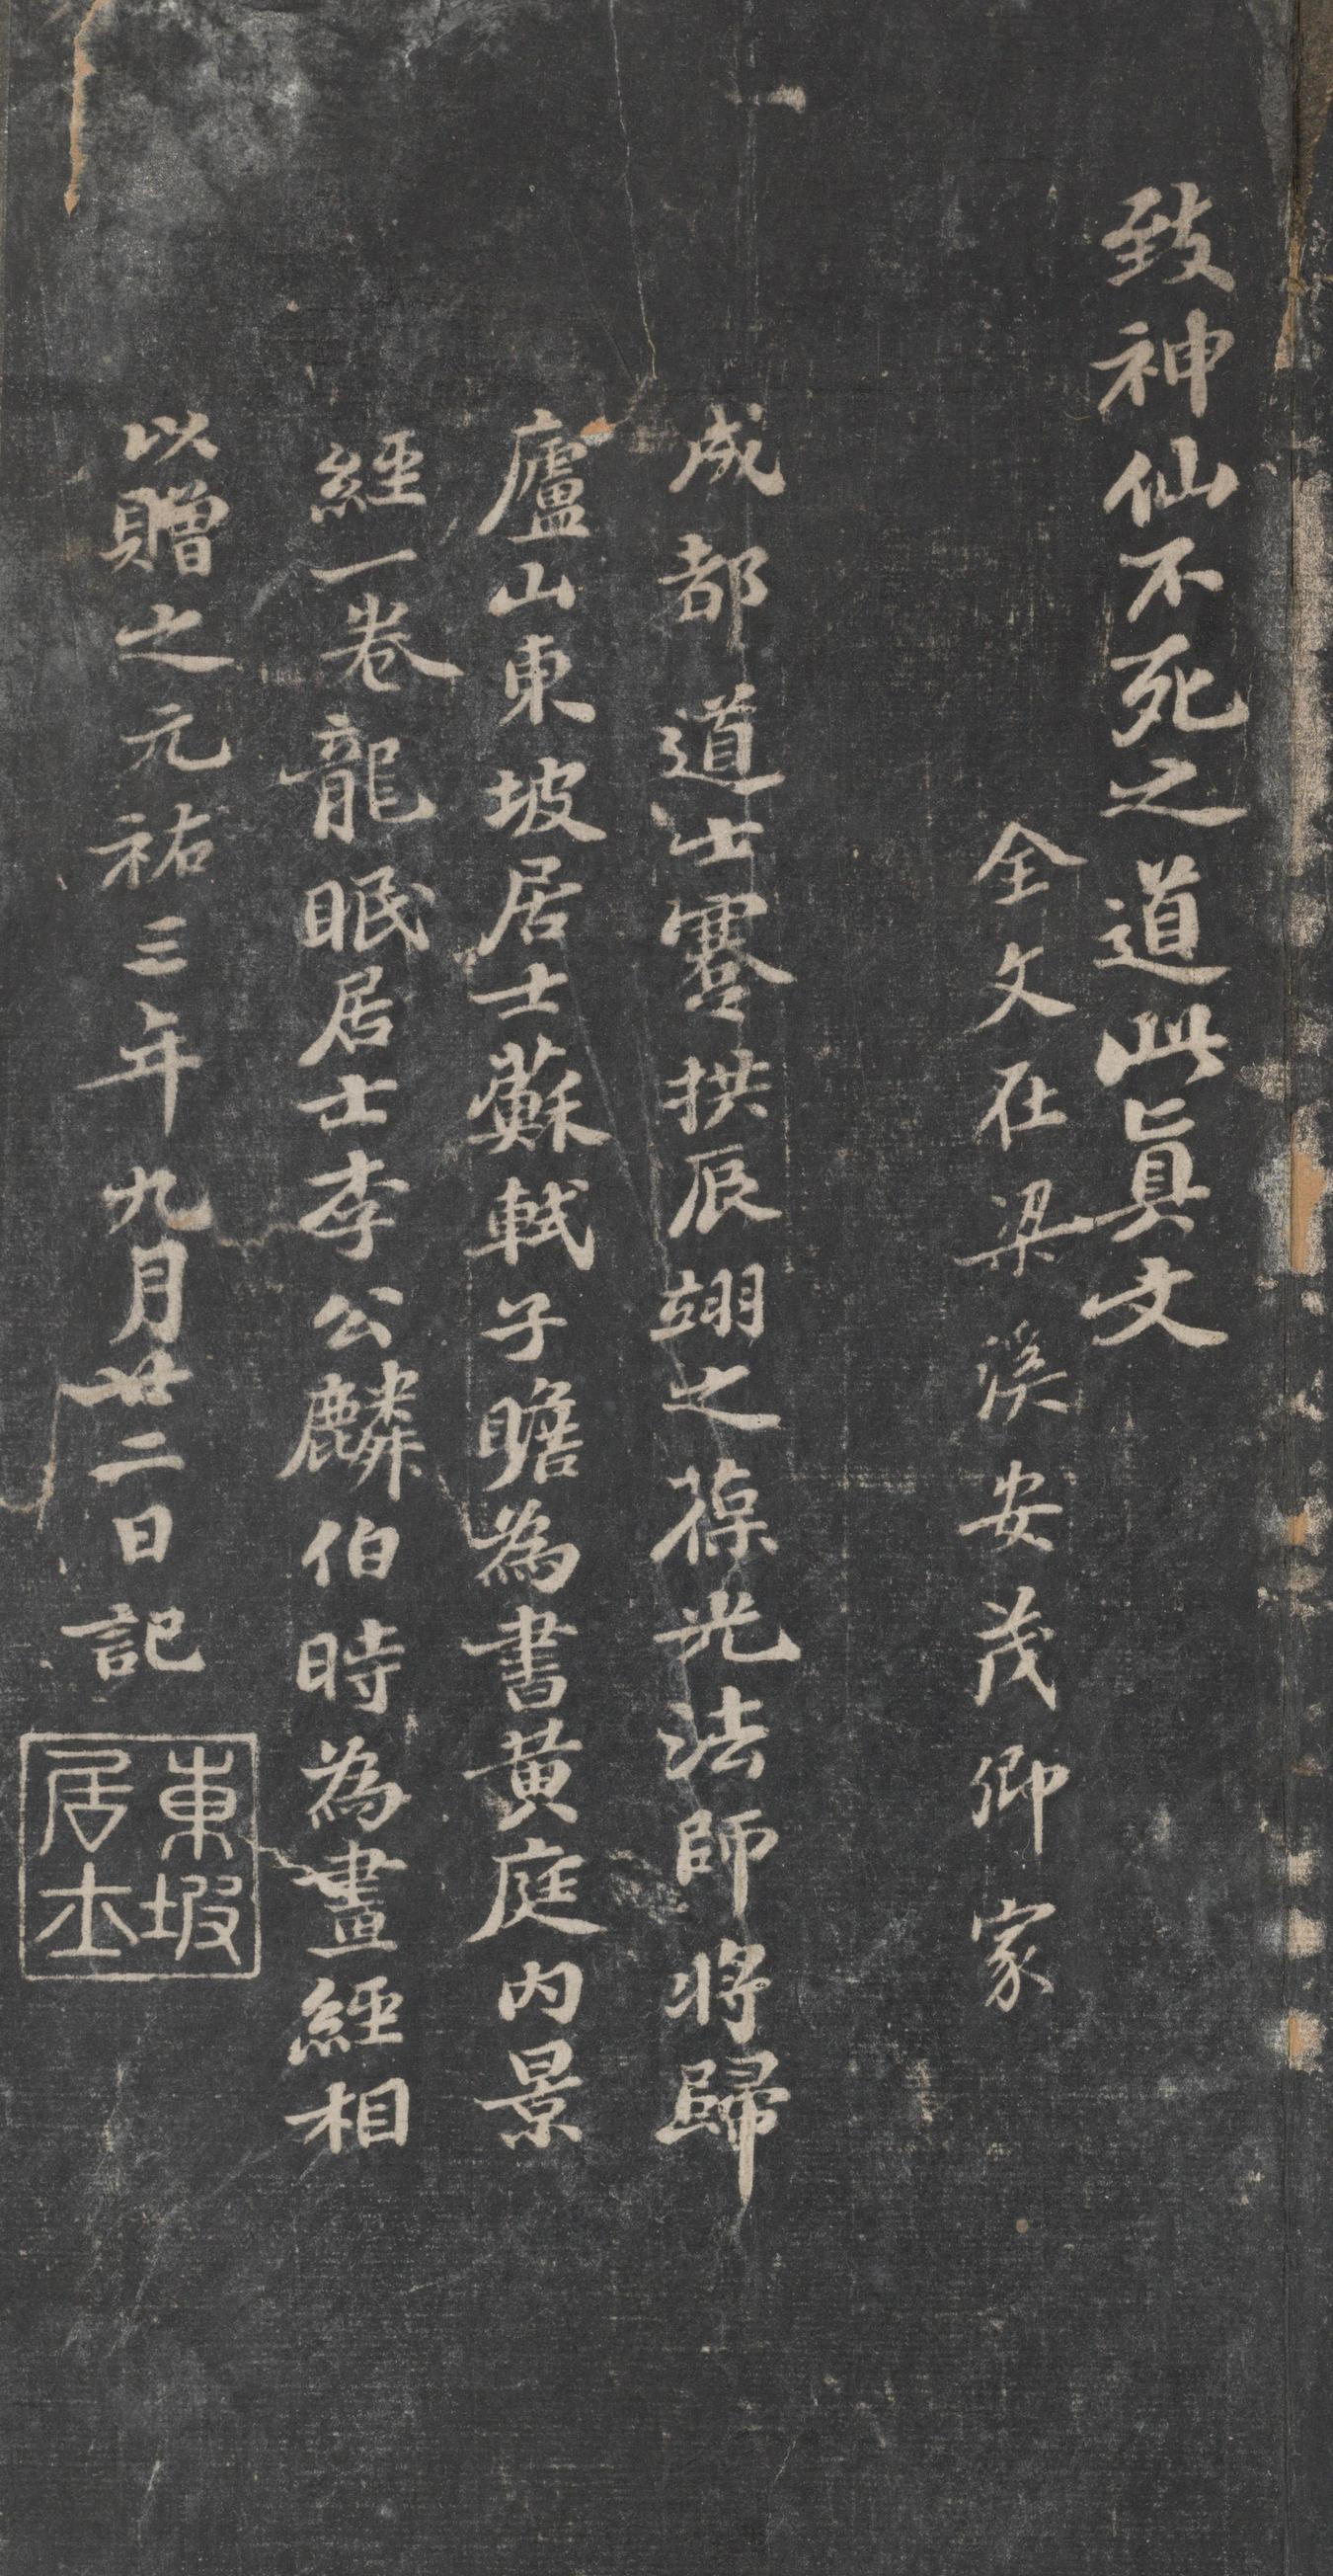 致神仙不死之道此眞文
全文在梁溪安茂卿家
成都道士蹇拱辰翊之葆光法師將歸
廬山東坡居士蘇軾子瞻為書黄庭内景
經一卷龍眠居士李公麟伯時為畫經相
以贈之元祐三年九月廿二日記
東坡
居士